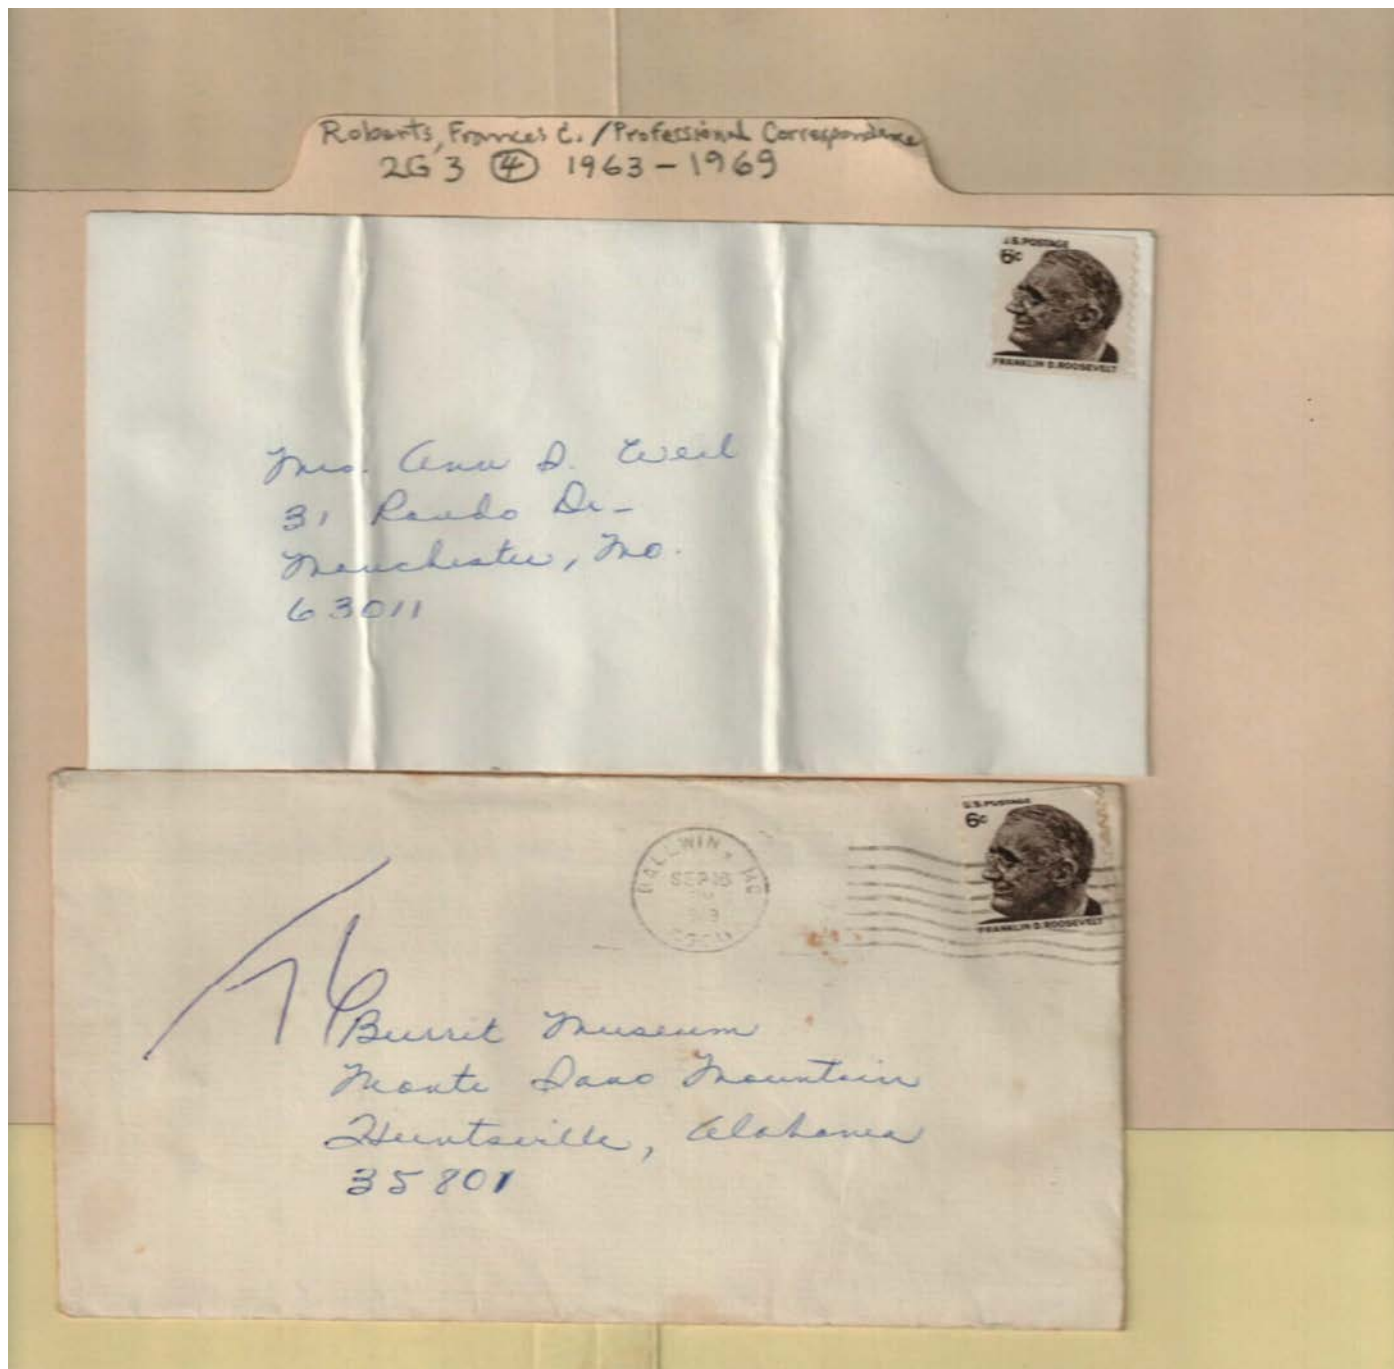 Roberts, Frances C. / Professional Correspondence
2G3 ④ 1963-1969
U.S. POSTAGE
6c
FRANKLIN D. ROOSEVELT
Mrs. Ann D. Weil
31 Rando Dr-
Manchester, Mo.
63011
U.S. POSTAGE
6c
FRANKLIN D. ROOSEVELT
BALLWIN, MO
SEP 16
Burrit Museum
Monte Sano Mountain
Huntsville, Alabama
35801